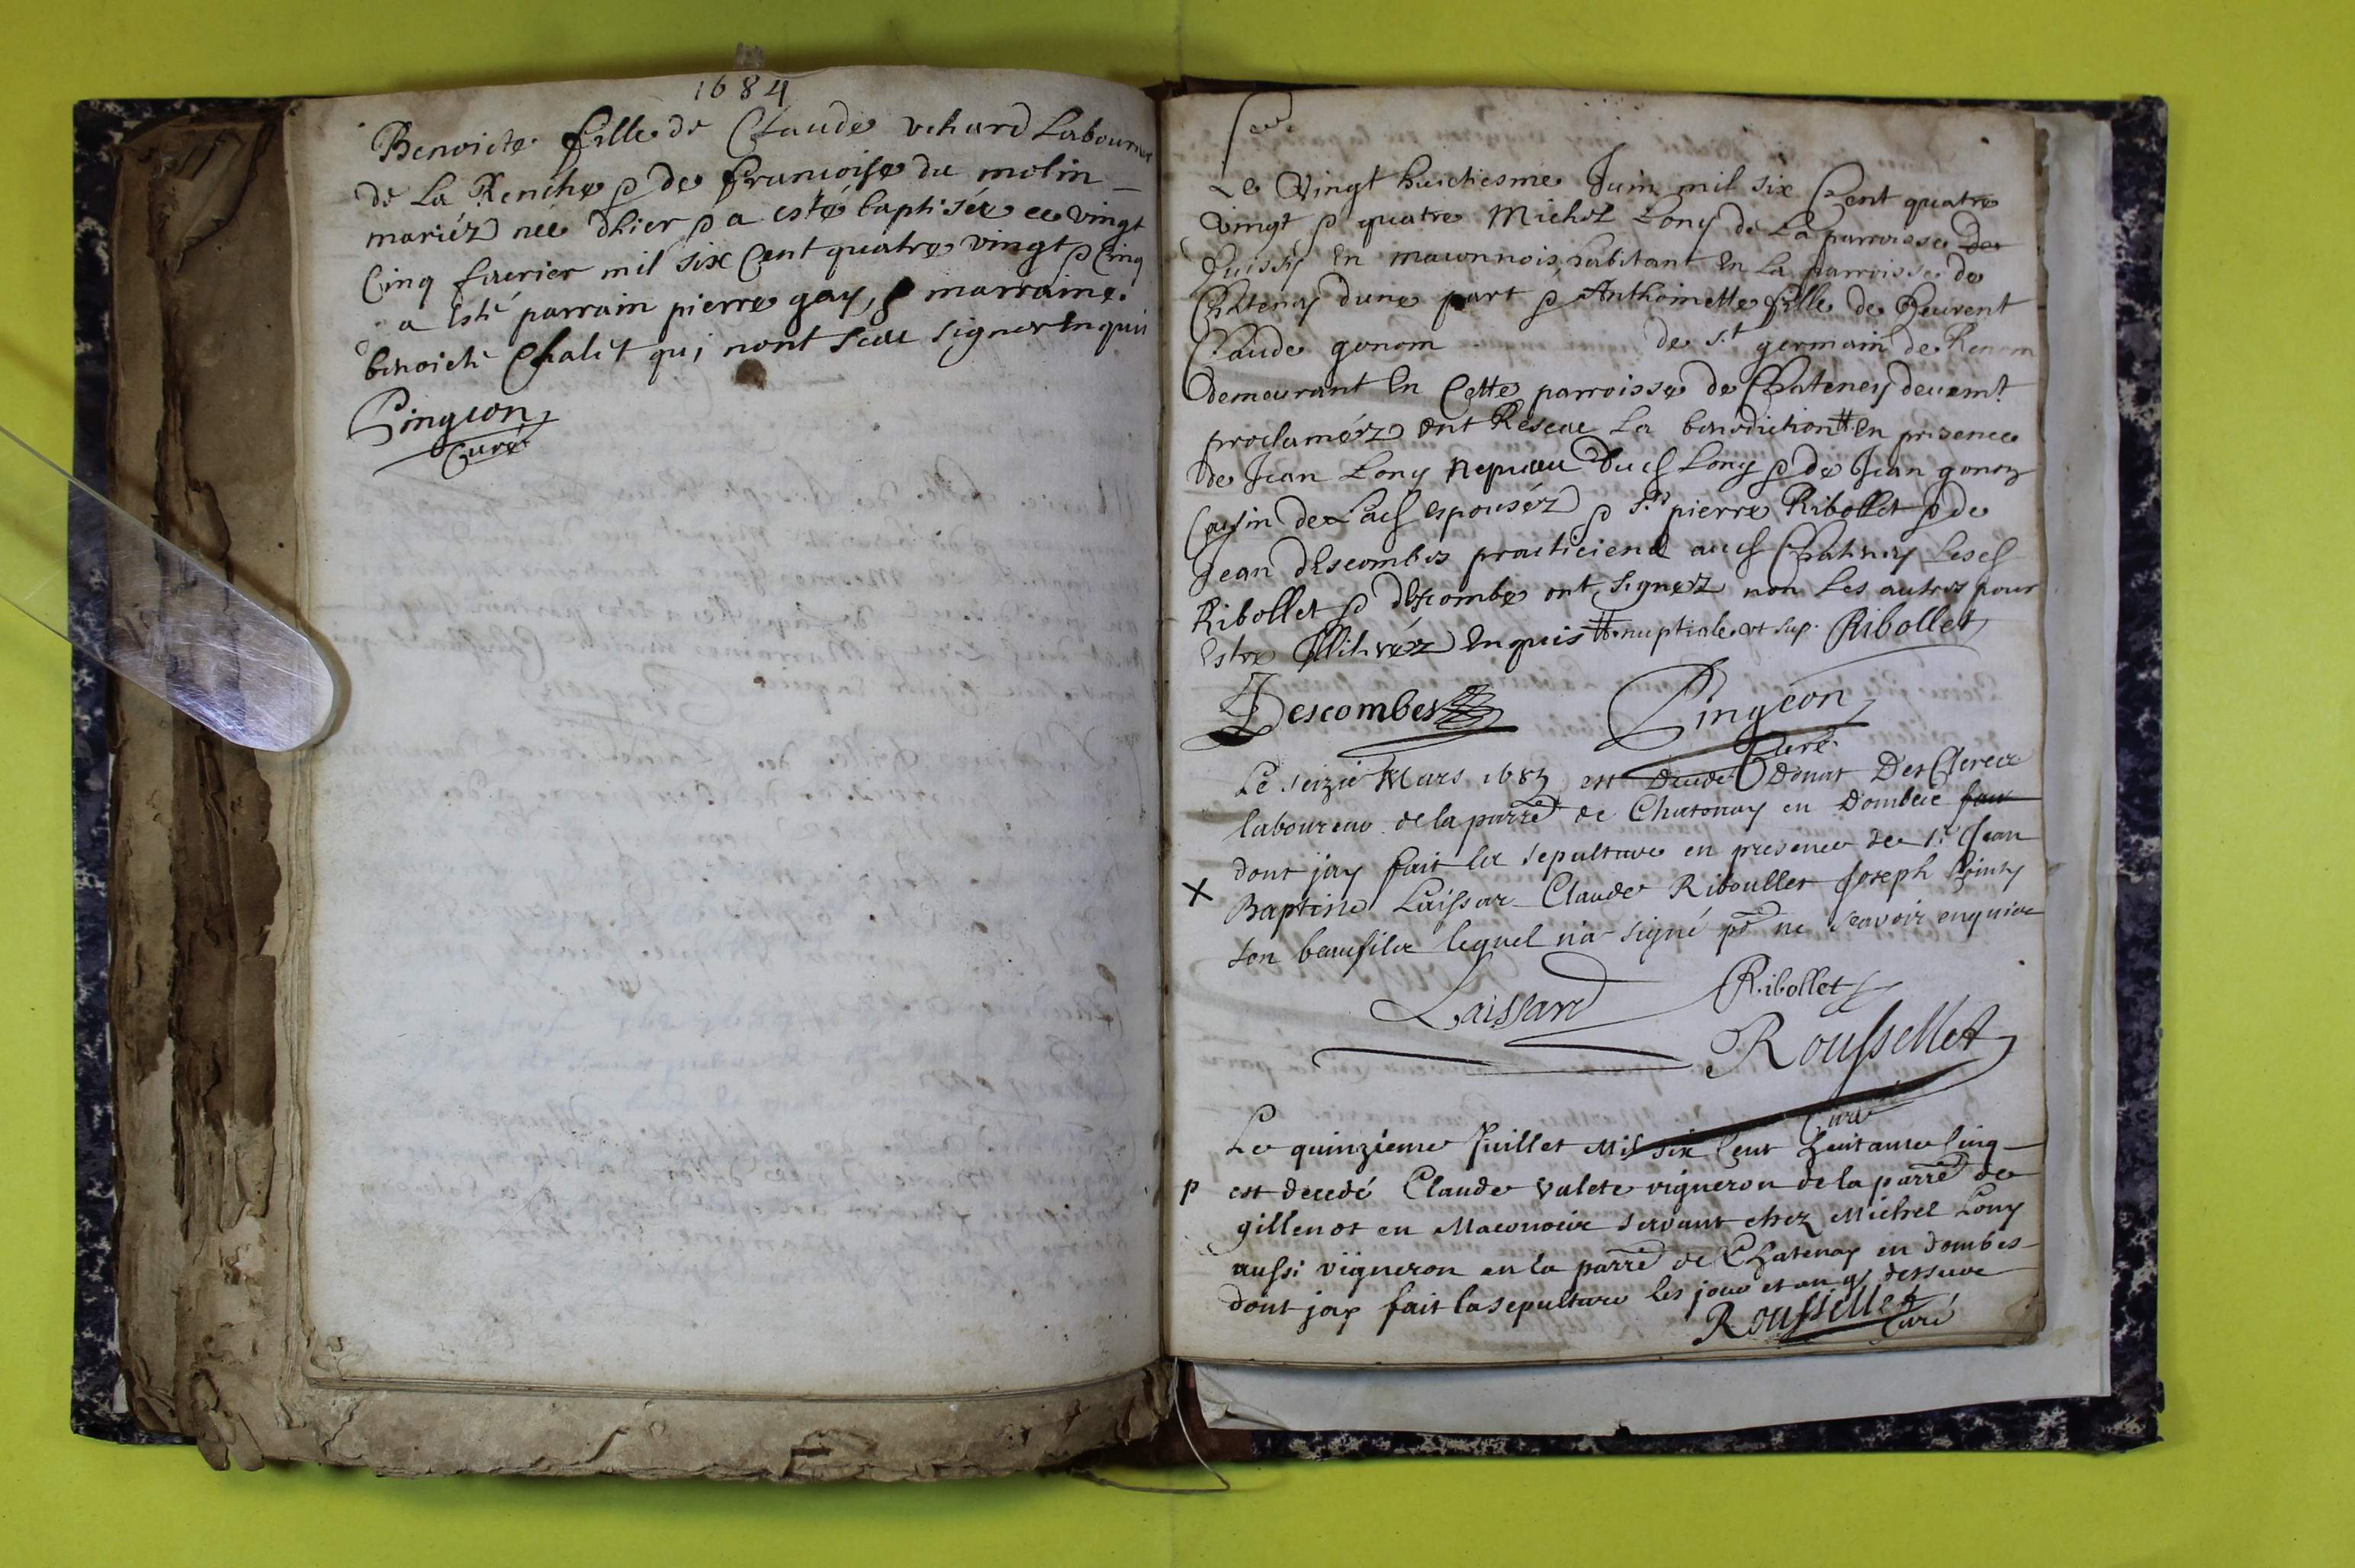 1684
Benoicte fille de Claude vehard Laboureur
de La Renche & de francoise du molin
mariéz née dhier & a esté baptisée ce vingt
Cinq feurier mil six Cent quatre vingt & Cinq
a Esté parrain pierre gay, & marraine
benoicte Chalet qui nont sceu signer Enquis
Pingeon
Curé
Le Vingt huictiesme Juin mil six Cent quatre
vingt & quatre Michel Lony de La parroisse de
Juissy En maconnois, habitant En La parroisse de
Chatenay dune part & Anthoinette fille de
Claude gonom de St germain de Renom
demeurant En Cette parroisse de Chateney deuemt
proclaméz ont Resceu La benediction # En presence
de Jean Lony nepueu dud Lony & de Jean gonon
Cousin de Lad espouséz & Sr pierre Ribollet & de
Jean descombes practiciens aud Chatenay Lesd
Ribollet & descombe ont signez non Les autres pour
Estre Illitréz Enquis # nuptiale ut sup. Ribollet
J Descombes Pingeon
Curé
Le seizie Mars 1685 est decede Donat Des Clerec
laboureur de la parre de Chatonay en Dombes
dont jay fait la sepulture en presence de Sr Jean
X Baptiste Laissar Claude Riboullet Joseph
son beaufils lequel n'a signé pr ne scavoir enquis
Laissard Ribollet
Roussellet
Curé
Le quinzieme Juillet Mil six Cent huitante Cinq
p est decedé Claude Valete vigneron de la parre de
gillenot en Maconois servant chez Michel Lony
aussi vigneron en la parre de Chatenay en dombes
dont jay fait la sepulture les jour et an q dessus
Roussellet
Curé